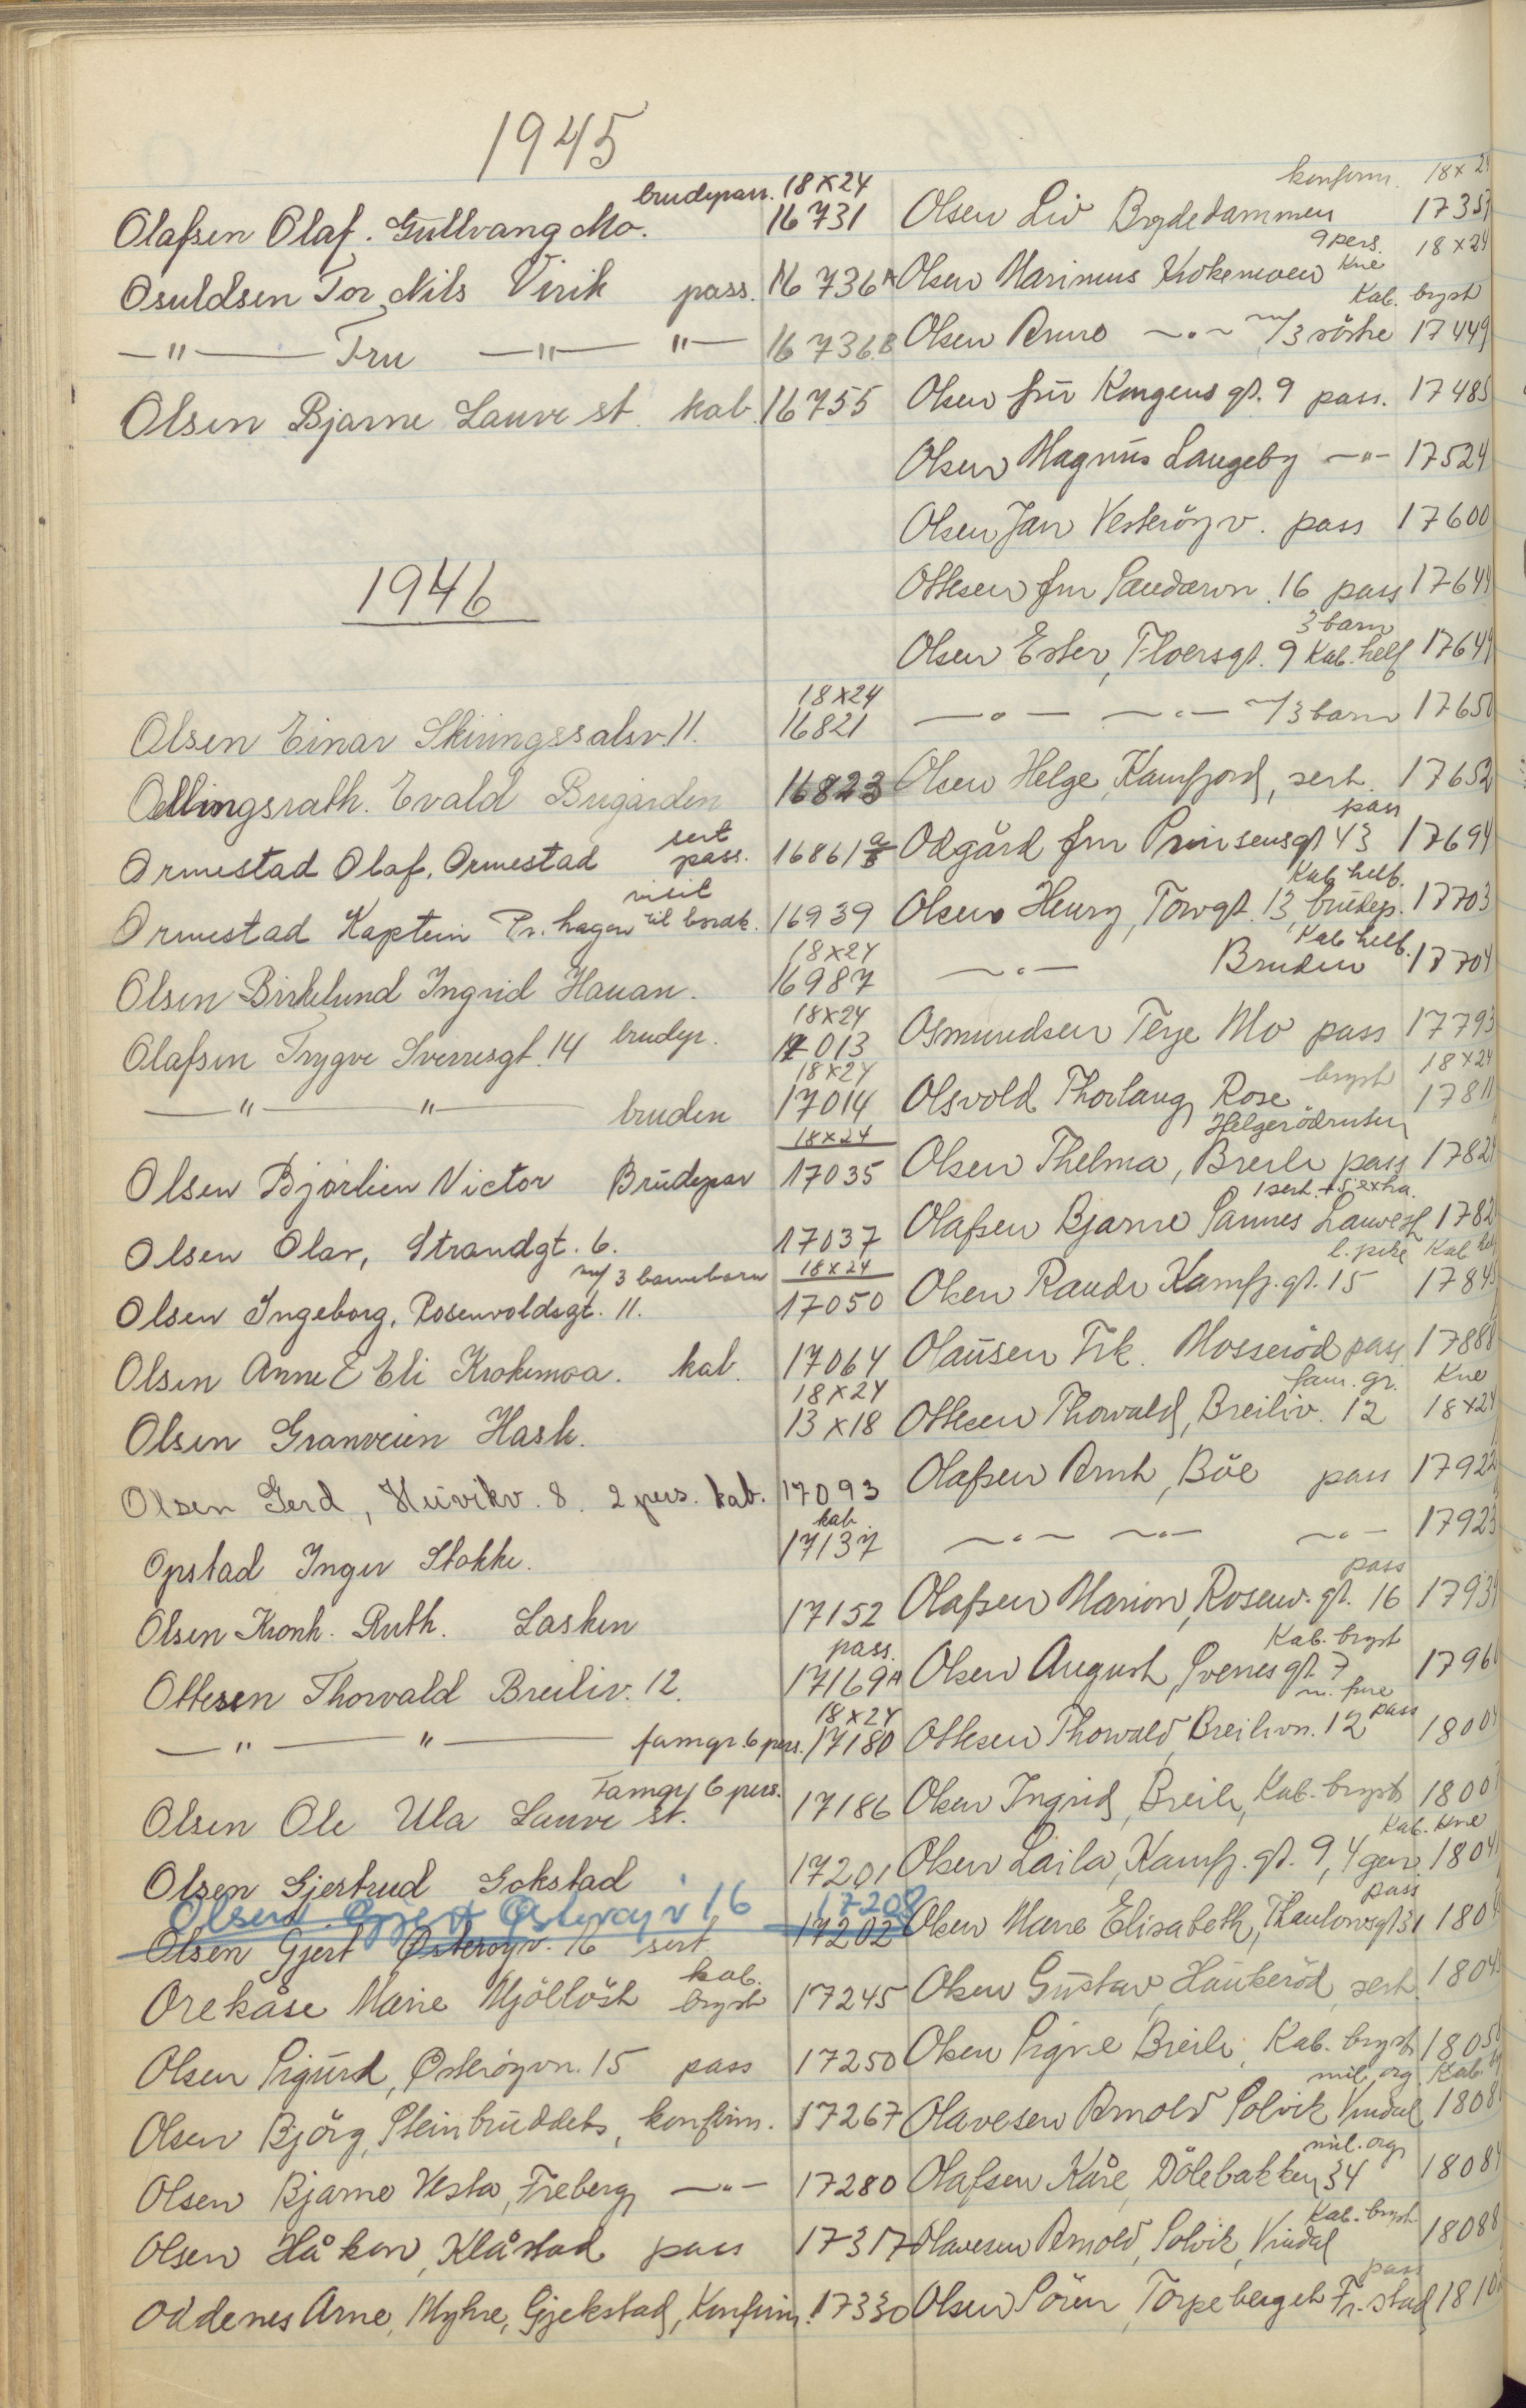 1945
Olafsen Olaf. Gullvang Mo. brudepar. 18x24 16731
Osuldsen Tor Nils Virik pass. 16736A
—"— Fru —"— "— 16736B
Olsen Bjarne Lauve st. kab. 16755
1946
Olsen Einar Skiringssalsv. 11. 18x24 16821
Ødlingsrath. Evald Brygården 16823
Ormestad Olaf, Ormestad sert pass. 16861
Ormestad Kaptein Pr. hagen visit til bordk. 16939
Olsen Birkelund Ingrid Hauan. 18x24 16987
Olafsen Trygve Sverresgt. 14 brudep. 18x24 17013
—"— "— bruden 18x24 17014
Olsen Bjørlien Victor Brudepar 18x24 17035
Olsen Olav, Strandgt. 6. 17037
Olsen Ingeborg, Rosenvoldsgt. 11. m/3 barnebarn 18x24 17050
Olsen Anne & Eli Krokemoa. kab. 17064
Olsen Granveien Hask. 18x24 13x18
Olsen Gerd, Huvikv. 8. 2 pers. kab. 17093
Opstad Inger Stokke. kab. 17137
Olsen Kronh. Ruth. Lasken 17152
Ottesen Thorvald Breiliv. 12. pass. 17169A
—"— "— famgr. 6 pers. 18x24 17180
Olsen Ole Ula Lauve st. Famgr 6 pers. 17186
Olsen Gjertrud Gokstad 17201
Olsen Gjert Østerøyv 16 17208
Olsen Gjert Østerøyv. 16 sert 17202
Orekåse Marie Mjölløst kab. bryst 17245
Olsen Sigurd, Østerøyvn. 15 pass 17250
Olsen Bjørg, Steinbruddets, konfirm. 17267
Olsen Bjarne Vesta, Freberg —"— 17280
Olsen Håkon, Klåstad pass 17317
Oddenes Arne, Myhre, Gjekstad, Konfirm. 17330
Olsen Liv Brydedammen konfirm. 18x24 1735
Olsen Marinus Krokemoen 9 pers. Kne 18x24
Olsen Arno —"— m/3 söstre Kab. bryst 17449
Olsen fru Kongens gt. 9 pass. 17485
Olsen Magnus Langeby —"— 17524
Olsen Jan Vesterøyv. pass 17600
Ottesen fru Sandarvn. 16 pass 1764
Olsen Ester, Thorsgt. 9 3 barn Kab. helf 17649
—"— —"— m/3 barn 17650
Olsen Helge, Kamfjord, sert. 17652
Odgård fru Prinsensgt 43 pass 17694
Olsen Henry, Torvgt. 13, brudep. Kab helf. 17703
—"— Bruden Kab helf. 17704
Osmundsen Terje Mo pass 17793
Olsvold Thorlaug Rose Helgerödruten bryst 18x24 1781
Olsen Thelma, Breili pass 1782
Olafsen Bjarne Sannes Lauvest 1 sert. + 5 extra. 1782
Olsen Randi Kamfj. gt. 15 l. pike Kab helf 1784
Olausen Frk. Mosseröd pass 17888
Ottesen Thorvald, Breiliv. 12 fam. gr. Kne 18x24
Olafsen Arnt, Böe pass 17922
—"— —"— —"— 17923
Olafsen Marion, Rosenv. gt. 16 pass 1793
Olsen August, Sverres gt. 7 Kab. bryst 1796
Ottesen Thorvald Breilivn. 12 m. frue pass 1800
Olsen Ingrid, Breili, Kab. bryst 1800
Olsen Laila, Kamfj. gt. 9, 4 gen. Kab. Kne 1804
Olsen Marie Elisabeth, Thaulowsgt 31 pass 180
Olsen Gustav, Haukeröd, sert 1804
Olsen Signe Breili, Kab. bryst 1805
Olavesen Arnold Solvik Vindal mil. org. Kab. 1808
Olafsen Kåre, Dölebakken 34 mil. org. 1808
Olavesen Arnold, Solvik, Vindal Kab. bryst 18088
Olsen Sören Torpeberget Fr. stad pass 1810